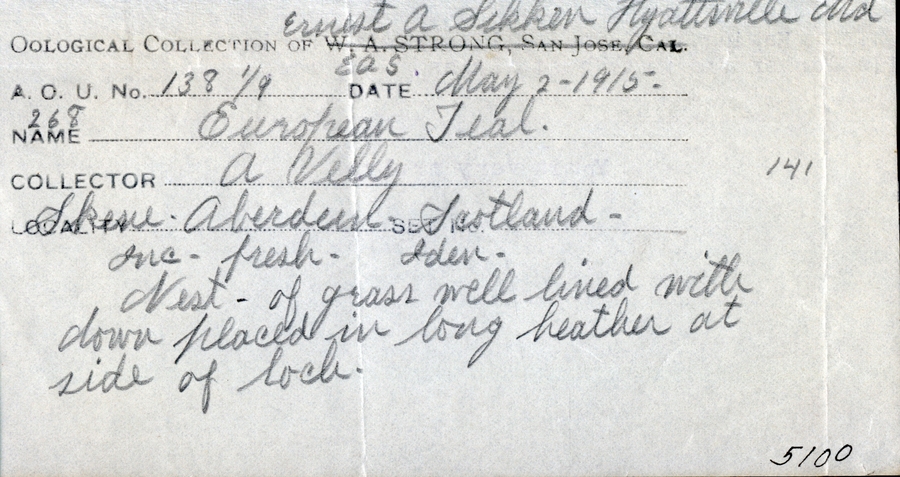 Ernest A Sikken Hyattsville Md
OOLOGICAL COLLECTION OF W. A. STRONG, SAN JOSE, CAL.
EAS
A. O. U. No. 138 1/9 DATE May 2-1915-
268
NAME European Teal.
COLLECTOR A Velly
141
LOCALITY Skene- Aberdeen- SET Scotland-
Inc- fresh- Iden-
Nest- of grass well lined with
down placed in long heather at
side of loch.
5100